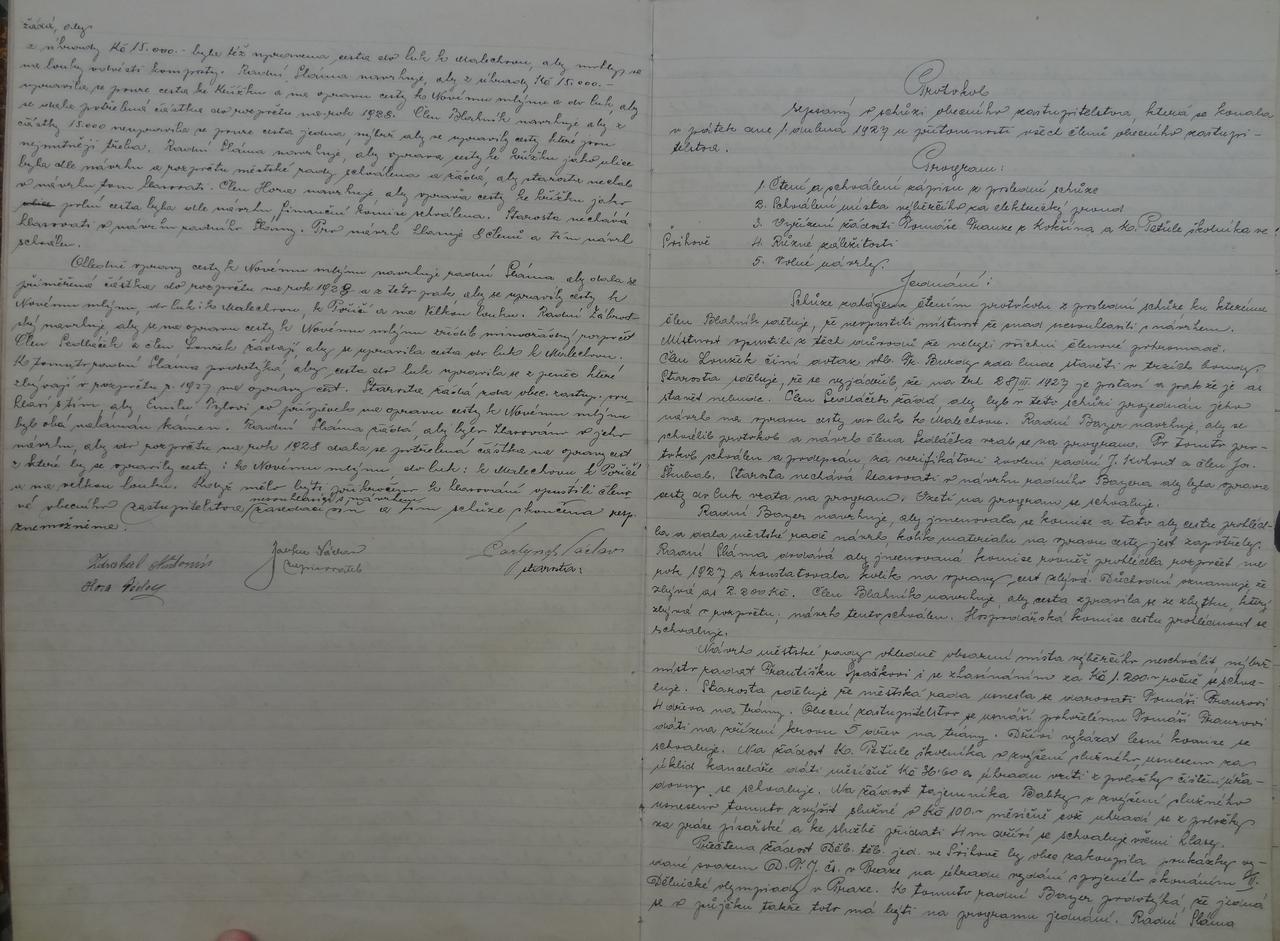 žádá, aby
z úhrady Kč 15.000.- byla též upravena cesta do luk k Malechovu, aby mohly se
na louky voditi komposty. Radní Sláma navrhuje, aby z úhrady Kč 15.000.-
upravila se pouze cesta ke Křížku a na opravu cesty k Novému mlýnu a do luk, aby
se dala potřebná částka do rozpočtu na rok 1928. Člen Blahník navrhuje aby z
částky 15.000 neupravila se pouze cesta jedna, nýbrž aby se upravily cesty které jsou
nejnutněji třeba. Radní Sláma navrhuje, aby oprava cesty ke Křížku jako ulice
byla dle návrhu a rozpočtu městské rady schválena a žádá, aby starosta nechal
o návrhu tom hlasovati. Člen Hora navrhuje aby oprava cesty ke křížku jako
polní cesta byla dle návrhu finanční komise schválena. Starosta nechává
hlasovati o návrhu radního Slámy. Pro návrh hlasuje 8 členů a tím návrh
schválen.
Ohledně opravy cesty k Novému mlýnu navrhuje radní Sláma aby dala se
přiměřená částka do rozpočtu na rok 1928 a z této pak, aby se upravily cesty k
Novému mlýnu, do luk k Malechovu, k Poříčí a na Velkou louku. Radní Zábrod-
ský navrhuje, aby se na opravu cesty k Novému mlýnu zřídil mimořádný rozpočet
Člen Sedláček a člen Loužek žádají, aby se upravila cesta do luk k Malechovu.
K tomuto radní Sláma podotýká, aby cesta do luk upravila se z peněz které
zbývají v rozpočtu r. 1927 na opravy cest. Starosta žádá zda obec. zastup. sou-
hlasí s tím, aby Emilu Tylovi co příspěvek na opravu cesty k Novému mlýnu
bylo oba nalámán kamen. Radní Sláma žádá, aby bylo hlasováno o jeho
návrhu, aby do rozpočtu na rok 1928 dala se potřebná částka na opravy cest
z které by se opravily cesty: k Novému mlýnu do luk: k Malechovu k Poříčí
a na velkou louku. Když mělo býti přikročeno k hlasování opustili členo-
nesouhlasíce s návrhem
vé obecního zastupitelstva zasedací síň a tím schůze skončena resp.
znemožněna.
Zdrahal Antonín
Hora
Václav
zapisovatel
Václav
starosta:
Protokol
sepsaný o schůzi obecního zastupitelstva, která se konala
v pátek dne 1. dubna 1927 u přítomnosti všech členů obecního zastupi-
telstva.
Program:
1. Čtení a schválení zápisu z poslední schůze
2. Schválení místa výběrčího za elektrický proud
3. Vyřízení žádosti Tomáše Franze z Kokšína a K. Petule školníka ve
Švihově 4. Různé záležitosti
5. Volné návrhy.
Jednání:
Schůze zahájena čtením protokolu z poslední schůze ku kterému
člen Blahník sděluje, že neopustili místnost že snad nesouhlasili s návrhem.
Místnost opustili z těch důvodů že nebyli všichni členové pohromadě.
Člen Loužek činí dotaz ohl. Fr. Burdy zda bude stavěti v třídě boudy.
Starosta sděluje, že se vyjádřil že na trh 28/III. 1927 je postaví a pak že je as
stavět nebude. Člen Sedláček žádá aby byl v této schůzi projednán jeho
návrh na opravu cesty do luk ke Malechovu. Radní Bayer navrhuje, aby se
schválil protokol a návrh člena Sedláčka vzal se na program. Po tomto pro-
tokol schválen a podepsán, za verifikátory zvoleni radní J. Kohout a člen Jos.
Skubal. Starosta nechává hlasovati o návrhu radního Bayera aby byla oprava
cesty do luk vzata na program. Vzetí na program se schvaluje.
Radní Bayer navrhuje, aby jmenovala se komise a tato aby cestu prohléd-
la a dala městské radě návrh, kolik materialu na opravu cesty jest zapotřebí.
Radní Sláma dodává aby jmenovaná komise rovněž prohlédla rozpočet na
rok 1927 a konstatovala kolik na opravy cest zbývá. Důchodní oznamuje, že
zbývá as 2.200 Kč. Člen Blahník navrhuje, aby cesta zpravila se ze zbytku, který
zbývá v rozpočtu, návrh tento schválen. Hospodářská komise cestu prohlédnout se
schvaluje.
Návrh městské rady ohledně obsazení místa výběrčího neschválit, nýbrž
místo zadat Františku Špačkovi i se zhasínáním za Kč 1.200.- ročně se schva-
luje. Starosta sděluje že městská rada usnesla se darovati Tomáši Franzovi
4 dřeva na trámy. Obecní zastupitelstvo se usnáší pohořelému Tomáši Franzovi
dáti na zřízení krovu 5 dřev na trámy. Dříví vykázat lesní komise se
schvaluje. Na žádost K. Petule školníka o zvýšení služného, usneseno za
úklid kanceláře dáti měsíčně Kč 36·60 a úhradu vzíti z položky čištění úřa-
dovny se schvaluje. Na žádost tajemníka Babky o zvýšení služného
usneseno tomuto zvýšit služné o Kč 100.- měsíčně což uhradí se z položky
za práce písařské a ke službě přidati 4 m dříví se schvaluje všemi hlasy.
Přečtena žádost Děl. těl. jed. ve Švihově by obec zakoupila poukázky vy-
dané svazem D.T.J. čs. v Praze na úhradu vydání spojeného s konáním II.
Dělnické olympiady v Praze. K tomuto radní Bayer podotýká, že jedná
se o půjčku takže toto má býti na programu jednání. Radní Sláma